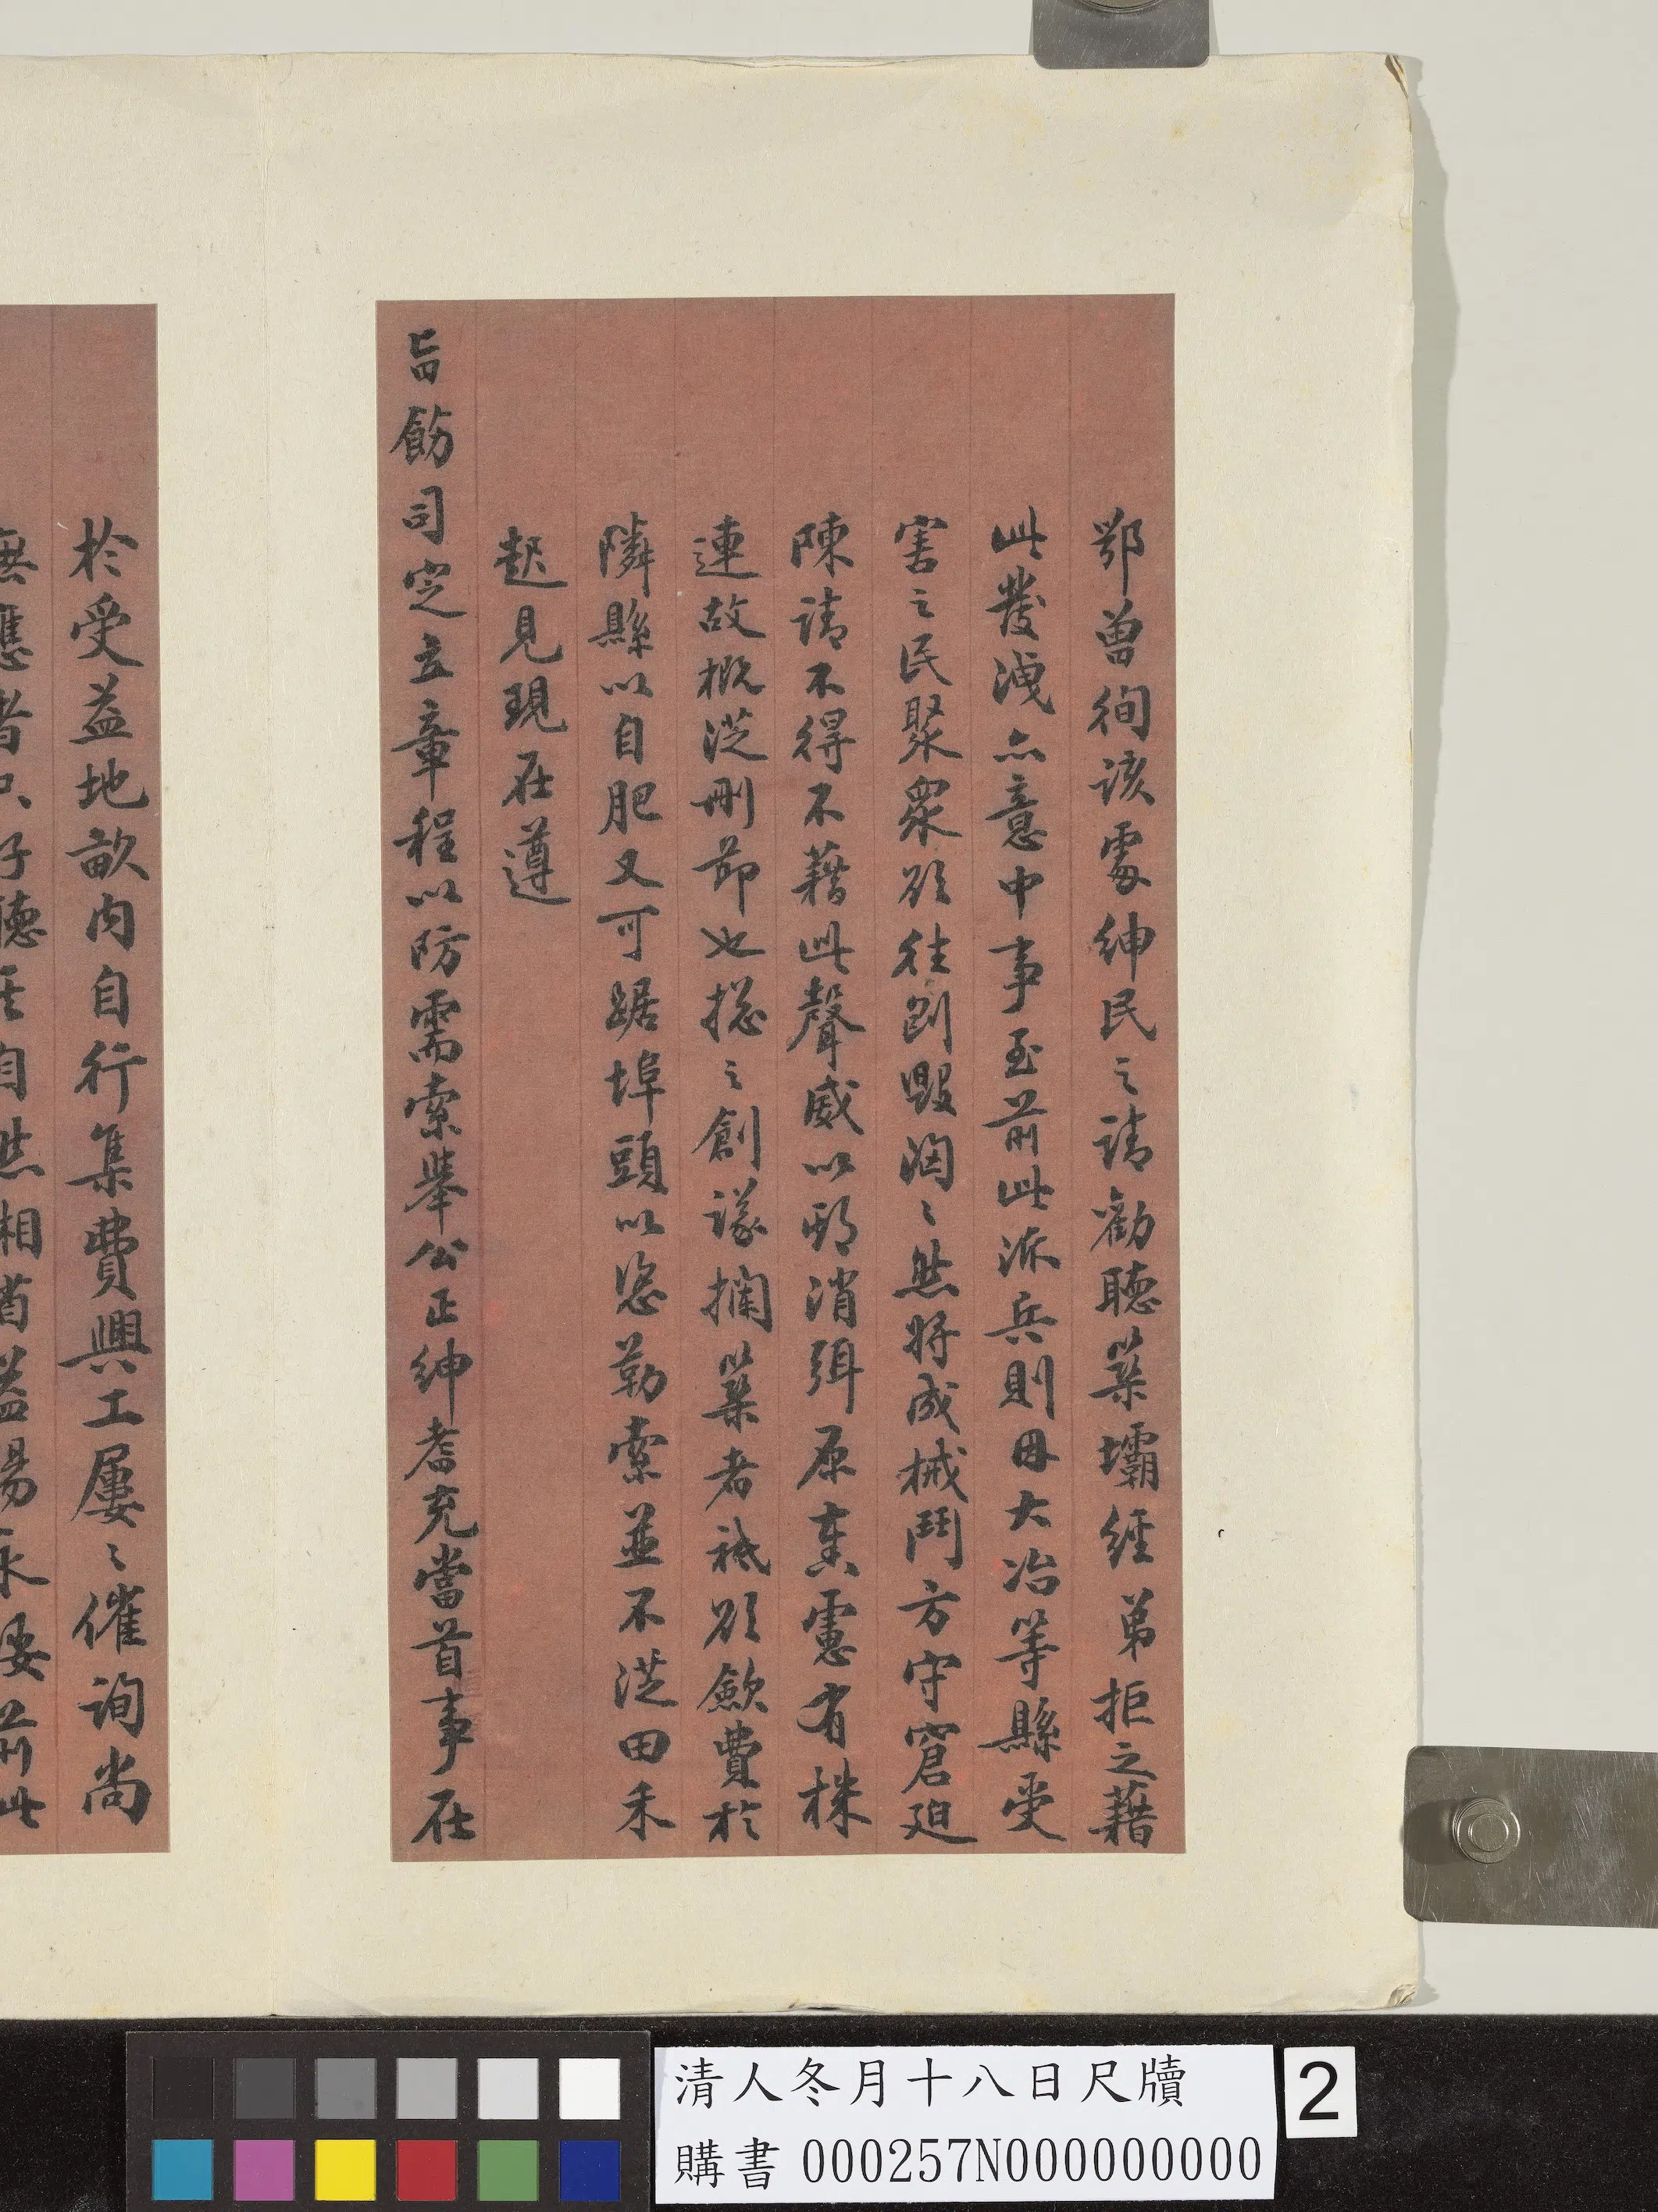 鄂曾徇該處紳民之請勸聽築壩經弟拒之藉
此發洩亦意中事至前此派兵則因大冶等縣受
害之民聚眾欲往剷毀洶〻然將成械鬥方守窘迫
陳請不得不藉此聲威以期消弭原奏慮有株
連故概從刪節也總之創議攔築者祗欲斂費於
隣縣以自肥又可踞埠頭以恣勒索並不從田禾
起見現在遵
旨飭司定立章程以防需索舉公正紳耆充當首事在
於受益地畝內自行集費興工屢〻催詢尚
無應者只好聽其自然相蓄盖湯永受前此
清人冬月十八日尺牘
購書 000257N000000000
2